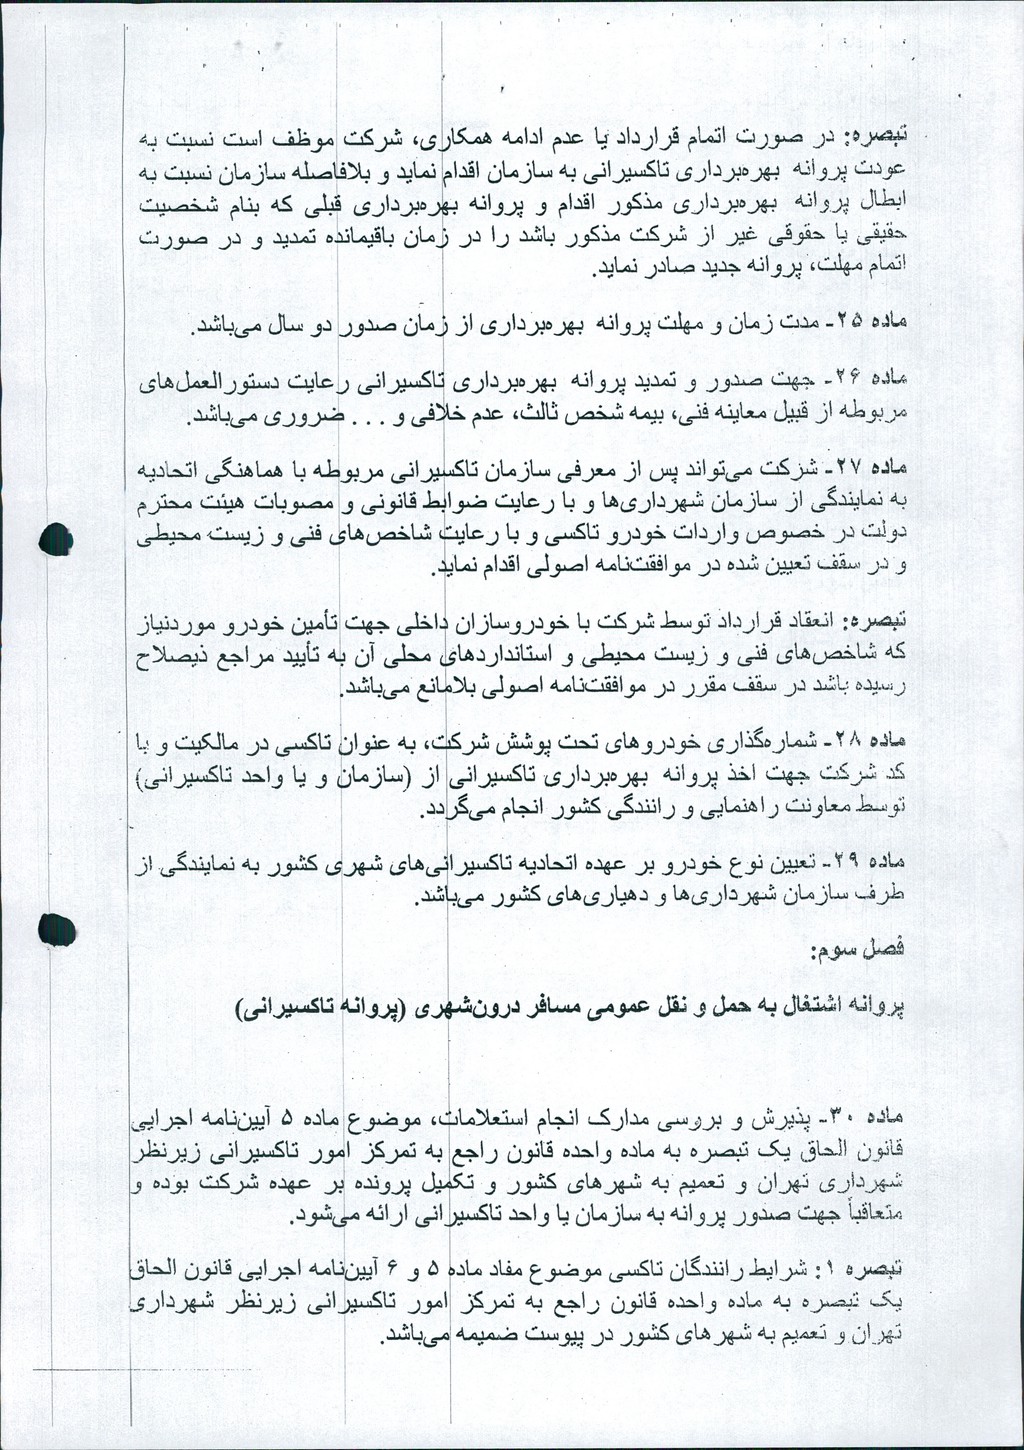 تبصره: در صورت اتمام قرارداد یا عدم ادامه همکاری، شرکت موظف است نسبت به
عودت پروانه بهره‌برداری تاکسیرانی به سازمان اقدام نماید و بلافاصله سازمان نسبت به
ابطال پروانه بهره‌برداری مذکور اقدام و پروانه بهره‌برداری قبلی که بنام شخصیت
حقیقی یا حقوقی غیر از شرکت مذکور باشد را در زمان باقیمانده تمدید و در صورت
اتمام مهلت، پروانه جدید صادر نماید.
ماده ۲۵- مدت زمان و مهلت پروانه بهره‌برداری از زمان صدور دو سال می‌باشد.
ماده ۲۶- جهت صدور و تمدید پروانه بهره‌برداری تاکسیرانی رعایت دستورالعمل‌های
مربوطه از قبیل معاینه فنی، بیمه شخص ثالث، عدم خلافی و ... ضروری می‌باشد.
ماده ۲۷- شرکت می‌تواند پس از معرفی سازمان تاکسیرانی مربوطه با هماهنگی اتحادیه
به نمایندگی از سازمان شهرداری‌ها و با رعایت ضوابط قانونی و مصوبات هیئت محترم
دولت در خصوص واردات خودرو تاکسی و با رعایت شاخص‌های فنی و زیست محیطی
و در سقف تعیین شده در موافقت‌نامه اصولی اقدام نماید.
تبصره: انعقاد قرارداد توسط شرکت با خودروسازان داخلی جهت تأمین خودرو موردنیاز
که شاخص‌های فنی و زیست محیطی و استانداردهای محلی آن به تأیید مراجع ذیصلاح
رسیده باشد در سقف مقرر در موافقت‌نامه اصولی بلامانع می‌باشد.
ماده ۲۸- شماره‌گذاری خودروهای تحت پوشش شرکت، به عنوان تاکسی در مالکیت و با
کد شرکت جهت اخذ پروانه بهره‌برداری تاکسیرانی از (سازمان و یا واحد تاکسیرانی)
توسط معاونت راهنمایی و رانندگی کشور انجام می‌گردد.
ماده ۲۹- تعیین نوع خودرو بر عهده اتحادیه تاکسیرانی‌های شهری کشور به نمایندگی از
طرف سازمان شهرداری‌ها و دهیاری‌های کشور می‌باشد.
فصل سوم:
پروانه اشتغال به حمل و نقل عمومی مسافر درون‌شهری (پروانه تاکسیرانی)
ماده ۳۰- پذیرش و بروسی مدارک انجام استعلامات، موضوع ماده ۵ آیین‌نامه اجرایی
قانون الحاق یک تبصره به ماده واحده قانون راجع به تمرکز امور تاکسیرانی زیرنظر
شهرداری تهران و تعمیم به شهرهای کشور و تکمیل پرونده بر عهده شرکت بوده و
متعاقباً جهت صدور پروانه به سازمان یا واحد تاکسیرانی ارائه می‌شود.
تبصره ۱: شرایط رانندگان تاکسی موضوع مفاد ماده ۵ و ۶ آیین‌نامه اجرایی قانون الحاق
یک تبصره به ماده واحده قانون راجع به تمرکز امور تاکسیرانی زیرنظر شهرداری
تهران و تعمیم به شهرهای کشور در پیوست ضمیمه می‌باشد.